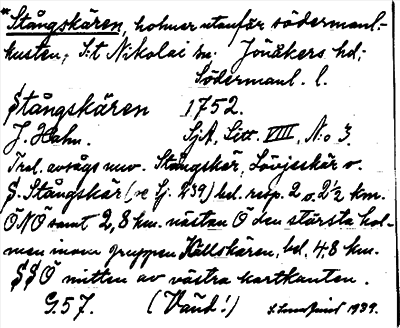 *Stångskären, holmar utanför södermanl.-
kusten, S:t Nikolai sn. Jönåkers hd;
Södermanl. l.
Stångskären 1752.
J. Hahn. SjA, Litt. VIII, N:o 3
Trol. avsågs nuv. Stångskär, Sövjeskär o.
S. Stångskär (se Sj. 239) bel. resp. 2 o. 2½ km.
ÖNÖ samt 2,8 km. nästan Ö den största hol-
men inom gruppen Hällskären, bel. 4,8 km.
SSÖ mitten av västra kartkanten.
G.57. (Vänd!) 1939.